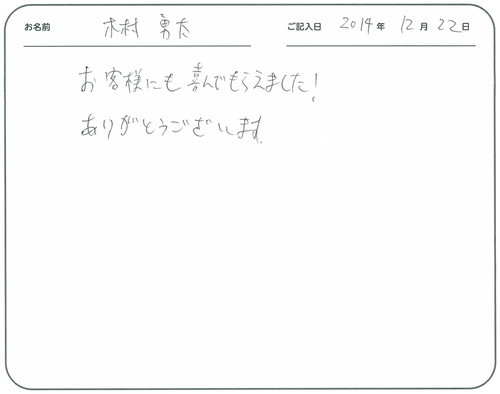 お名前 木村 勇太 ご記入日 2014年 12月 22日
お客様にも喜んでもらえました!
ありがとうございます